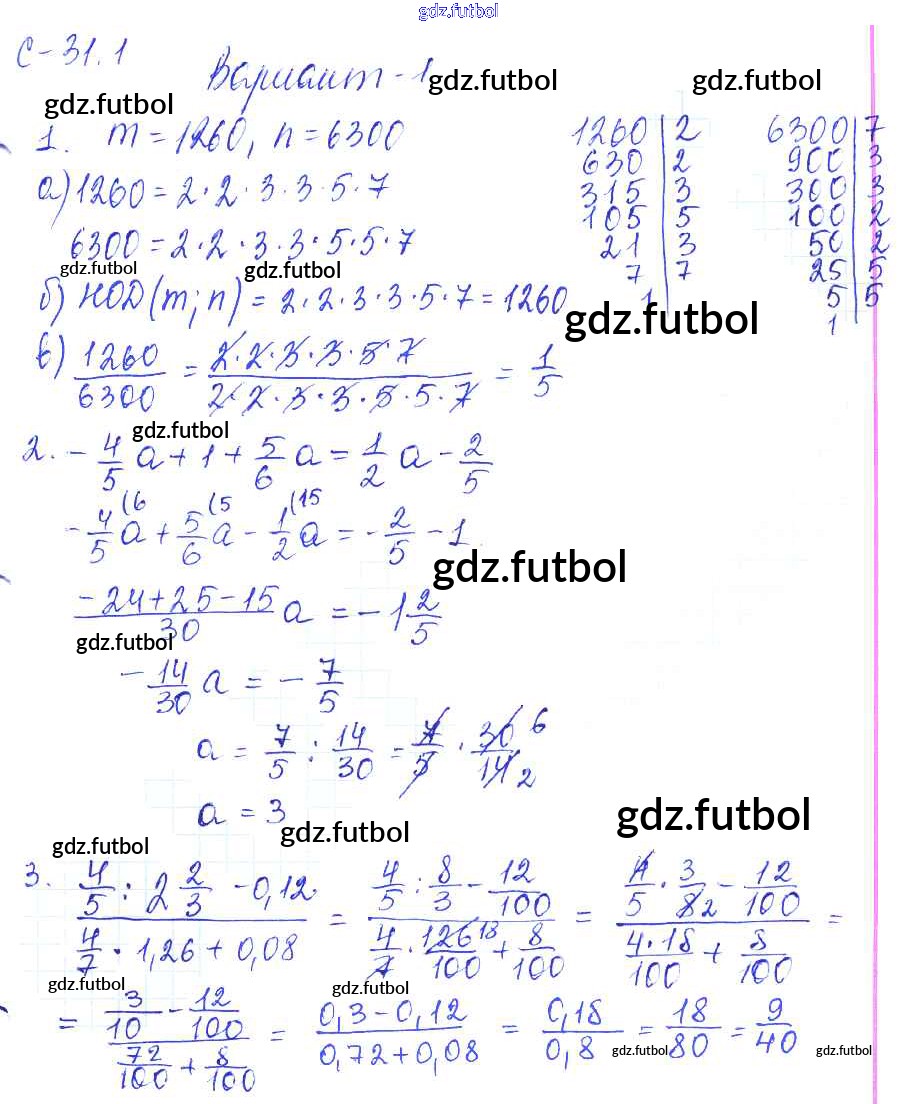 gdz.futbol
С-31.1
Вариант-1
gdz.futbol
gdz.futbol
gdz.futbol
1. m = 1260, n = 6300
1260 | 2
630 | 2
315 | 3
105 | 5
21 | 3
7 | 7
1
6300 | 7
900 | 3
300 | 3
100 | 2
50 | 2
25 | 5
5 | 5
1
а) 1260 = 2·2·3·3·5·7
6300 = 2·2·3·3·5·5·7
gdz.futbol
gdz.futbol
б) НОД(m; n) = 2·2·3·3·5·7 = 1260
gdz.futbol
в) 1260/6300 = (2·2·3·3·5·7)/(2·2·3·3·5·5·7) = 1/5
gdz.futbol
2. - 4/5 a + 1 + 5/6 a = 1/2 a - 2/5
- 4/5 (6 a + 5/6 (5 a - 1/2 (15 a = - 2/5 - 1
gdz.futbol
(-24+25-15)/30 a = - 1 2/5
gdz.futbol
- 14/30 a = - 7/5
a = 7/5 : 14/30 = 7/5 · 30 6/14 2
a = 3
gdz.futbol
gdz.futbol
gdz.futbol
3. (4/5 : 2 2/3 - 0,12)/(4/7 · 1,26 + 0,08) = (4/5 : 8/3 - 12/100)/(4/7 · 126 18/100 + 8/100) = (4/5 · 3/8 2 - 12/100)/(4·18/100 + 8/100) =
gdz.futbol
gdz.futbol
= (3/10 - 12/100)/(72/100 + 8/100) = (0,3 - 0,12)/(0,72 + 0,08) = 0,18/0,8 = 18/80 = 9/40
gdz.futbol
gdz.futbol